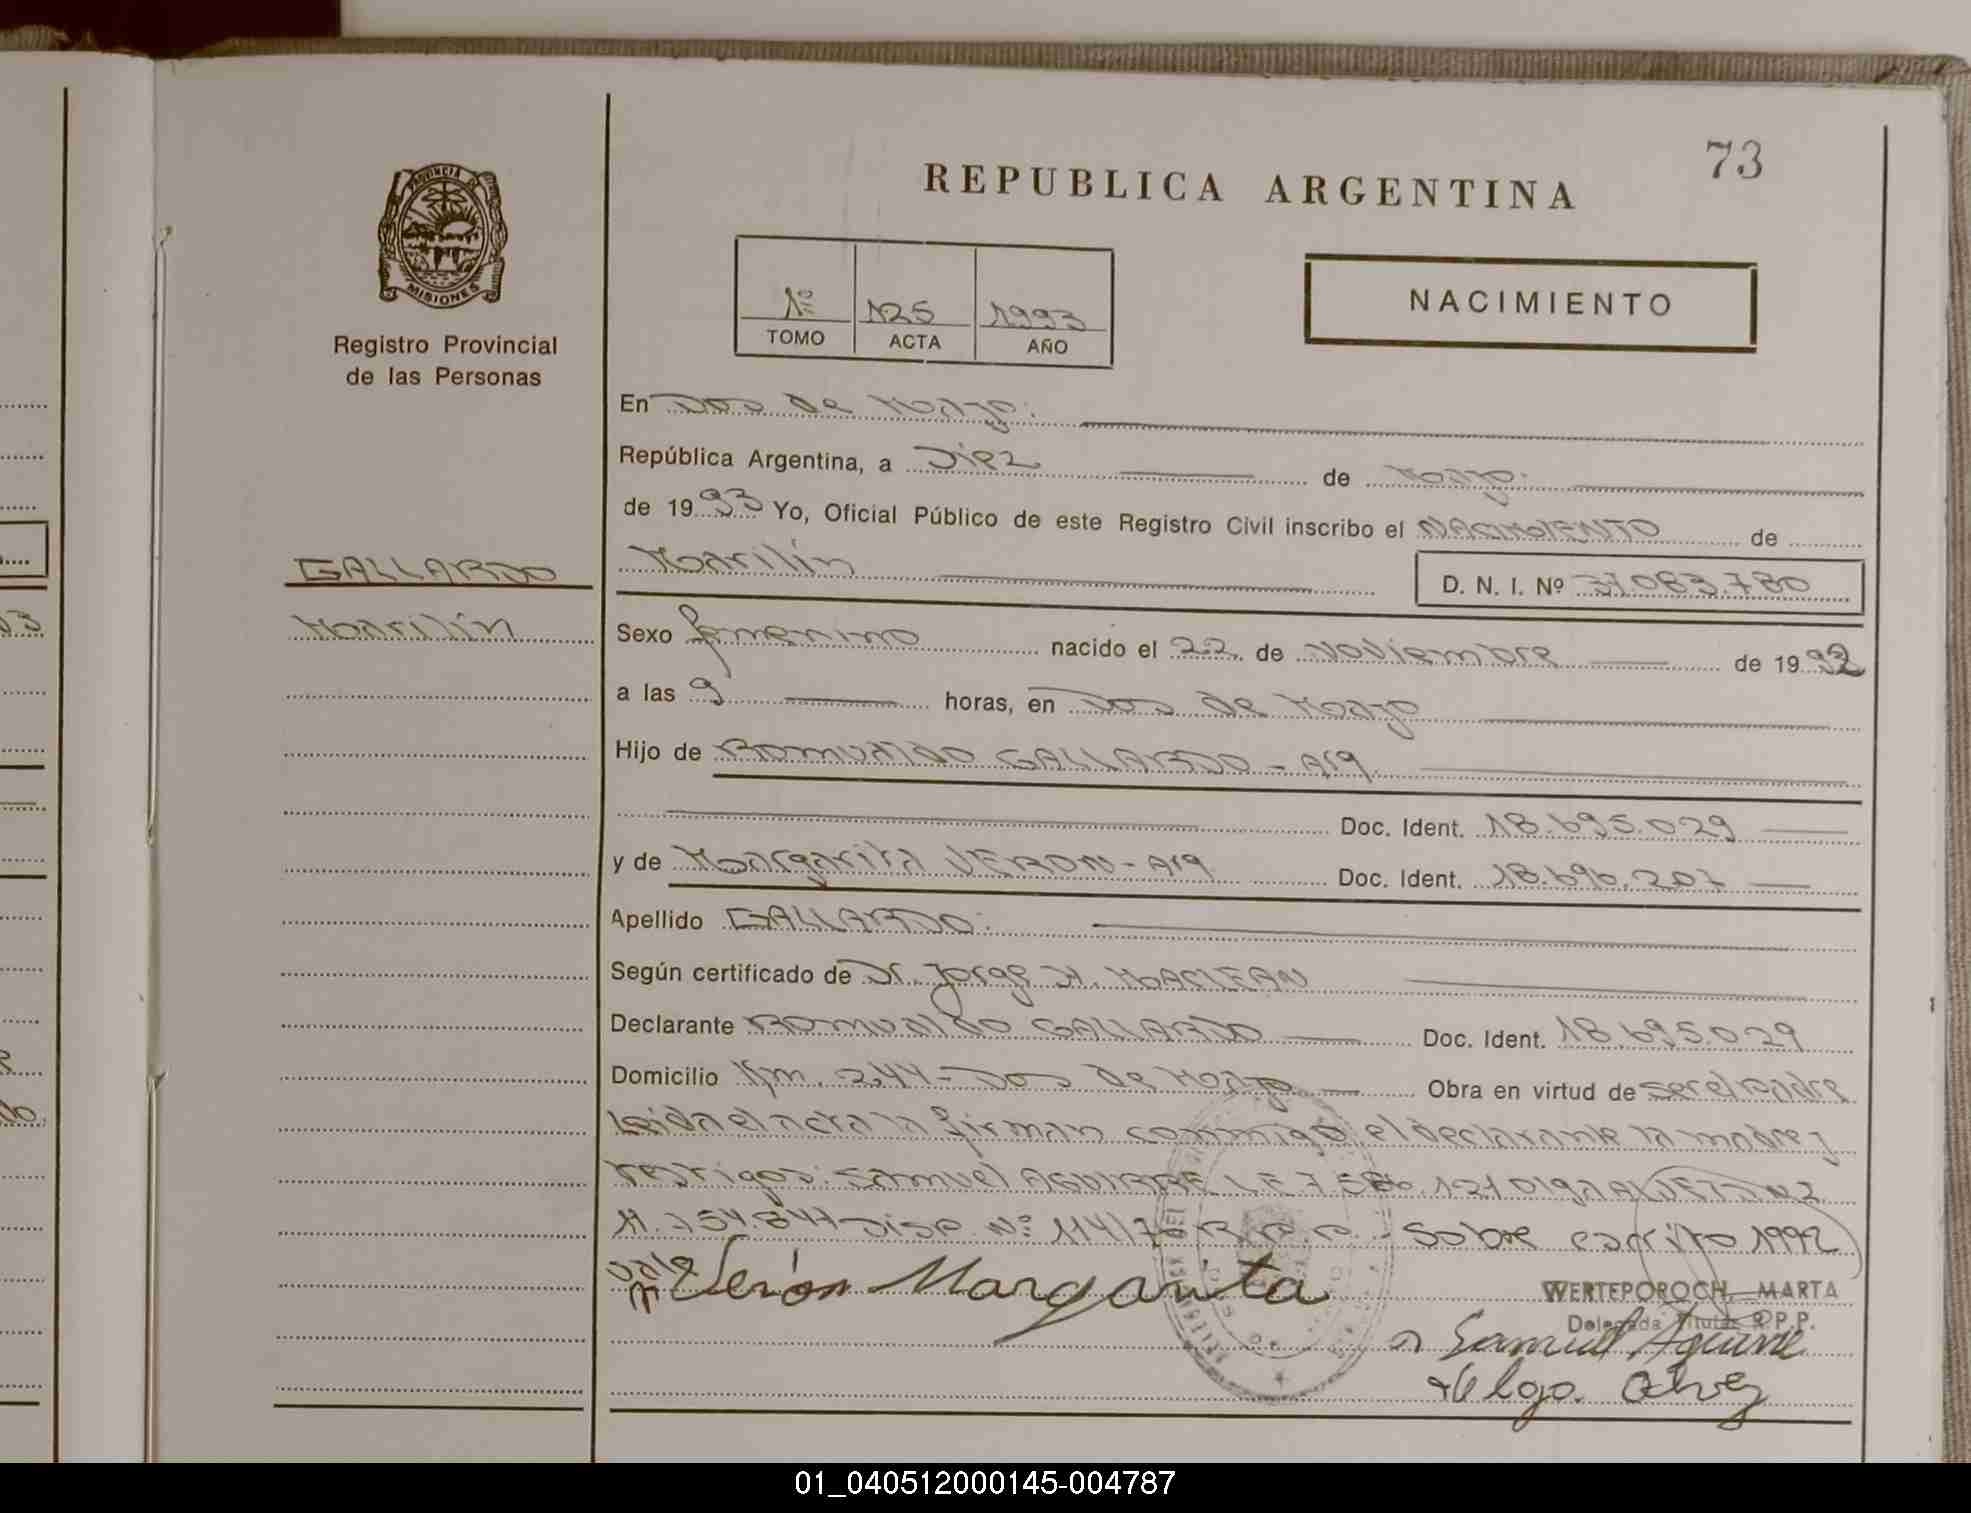 73
PROVINCIA DE
MISIONES
Registro Provincial
de las Personas
REPUBLICA ARGENTINA
1º 125 1993
TOMO ACTA AÑO
NACIMIENTO
En Dos de Mayo.
República Argentina, a Diez de Mayo.
de 1993 Yo, Oficial Público de este Registro Civil inscribo el NACIMIENTO de
GALLARDO
Marilín
Marilín D. N. I. Nº 37.083.780
Sexo femenino nacido el 22 de Noviembre de 1992
a las 9 horas, en Dos de Mayo
Hijo de ROMUALDO GALLARDO - Arg.
Doc. Ident. 18.695.029
y de Margarita VERON - Arg Doc. Ident. 18.696.207
Apellido GALLARDO.
Según certificado de Dr. Jorge A. MACLEAN
Declarante ROMUALDO GALLARDO Doc. Ident. 18.695.029
Domicilio Km. 244 - Dos de Mayo Obra en virtud de ser el Padre
Leida el acta la firman conmigo el declarante la madre y
testigos: Samuel AGUIRRE L.E 7.586.121 Olga
11.754.847 Disp. Nº 114/76 R.P.P. - Sobre escrito 1992
Vale
Verón Margarita
WERTEPOROCH, MARTA
Delegada Titular R.P.P.
Samuel Aguirre
Olga
01_040512000145-004787